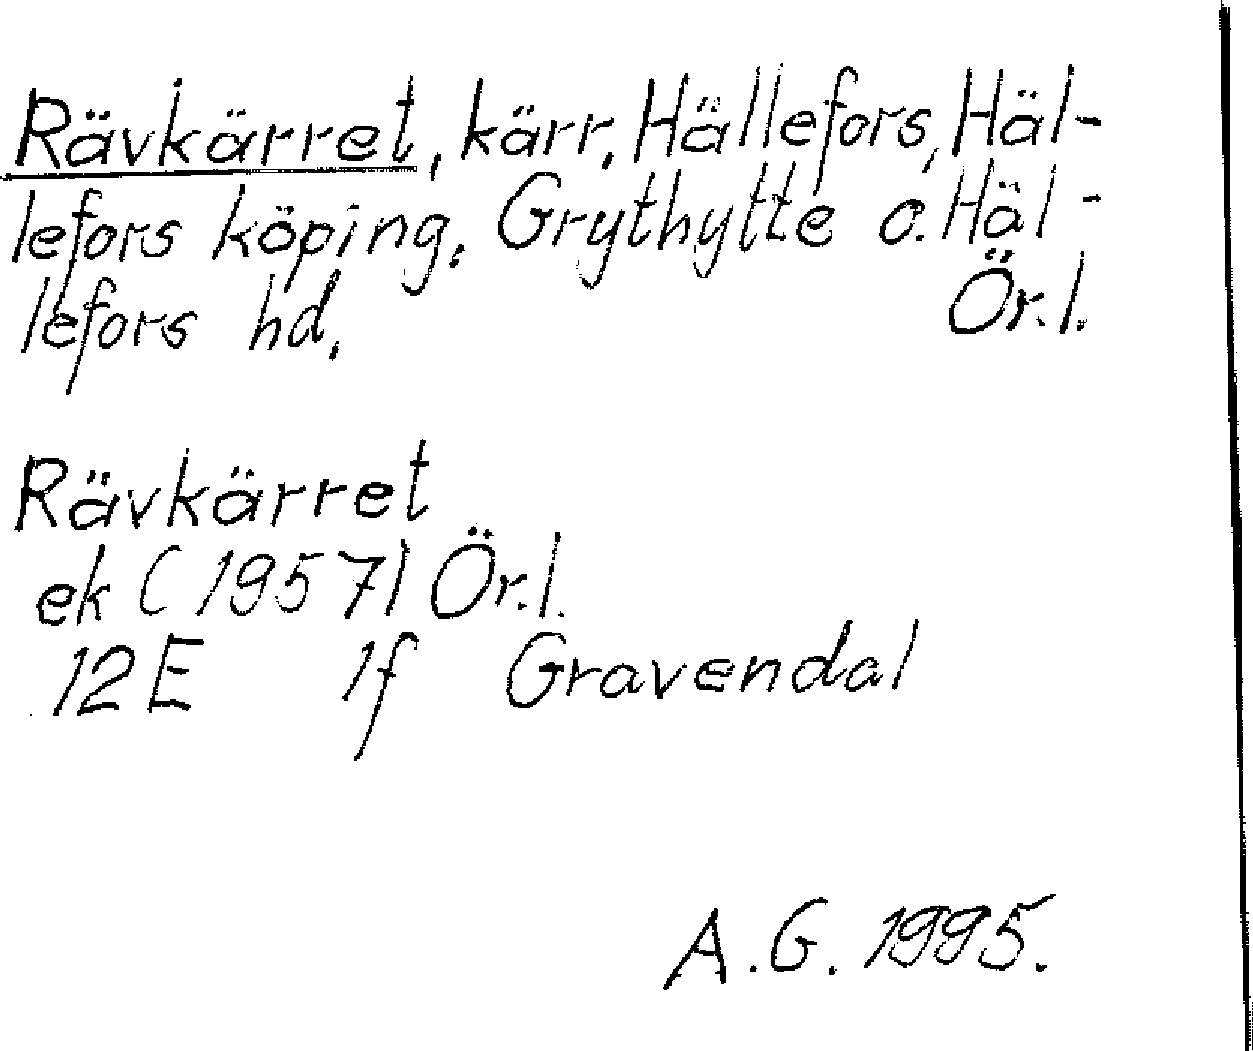 Rävkärret, kärr, Hällefors, Häl-
lefors köping, Grythytte o. Häl-
lefors hd. Ör.l.
Rävkärret
ek (1957) Ör.l.
12E 1f Gravendal
A.G. 1995.